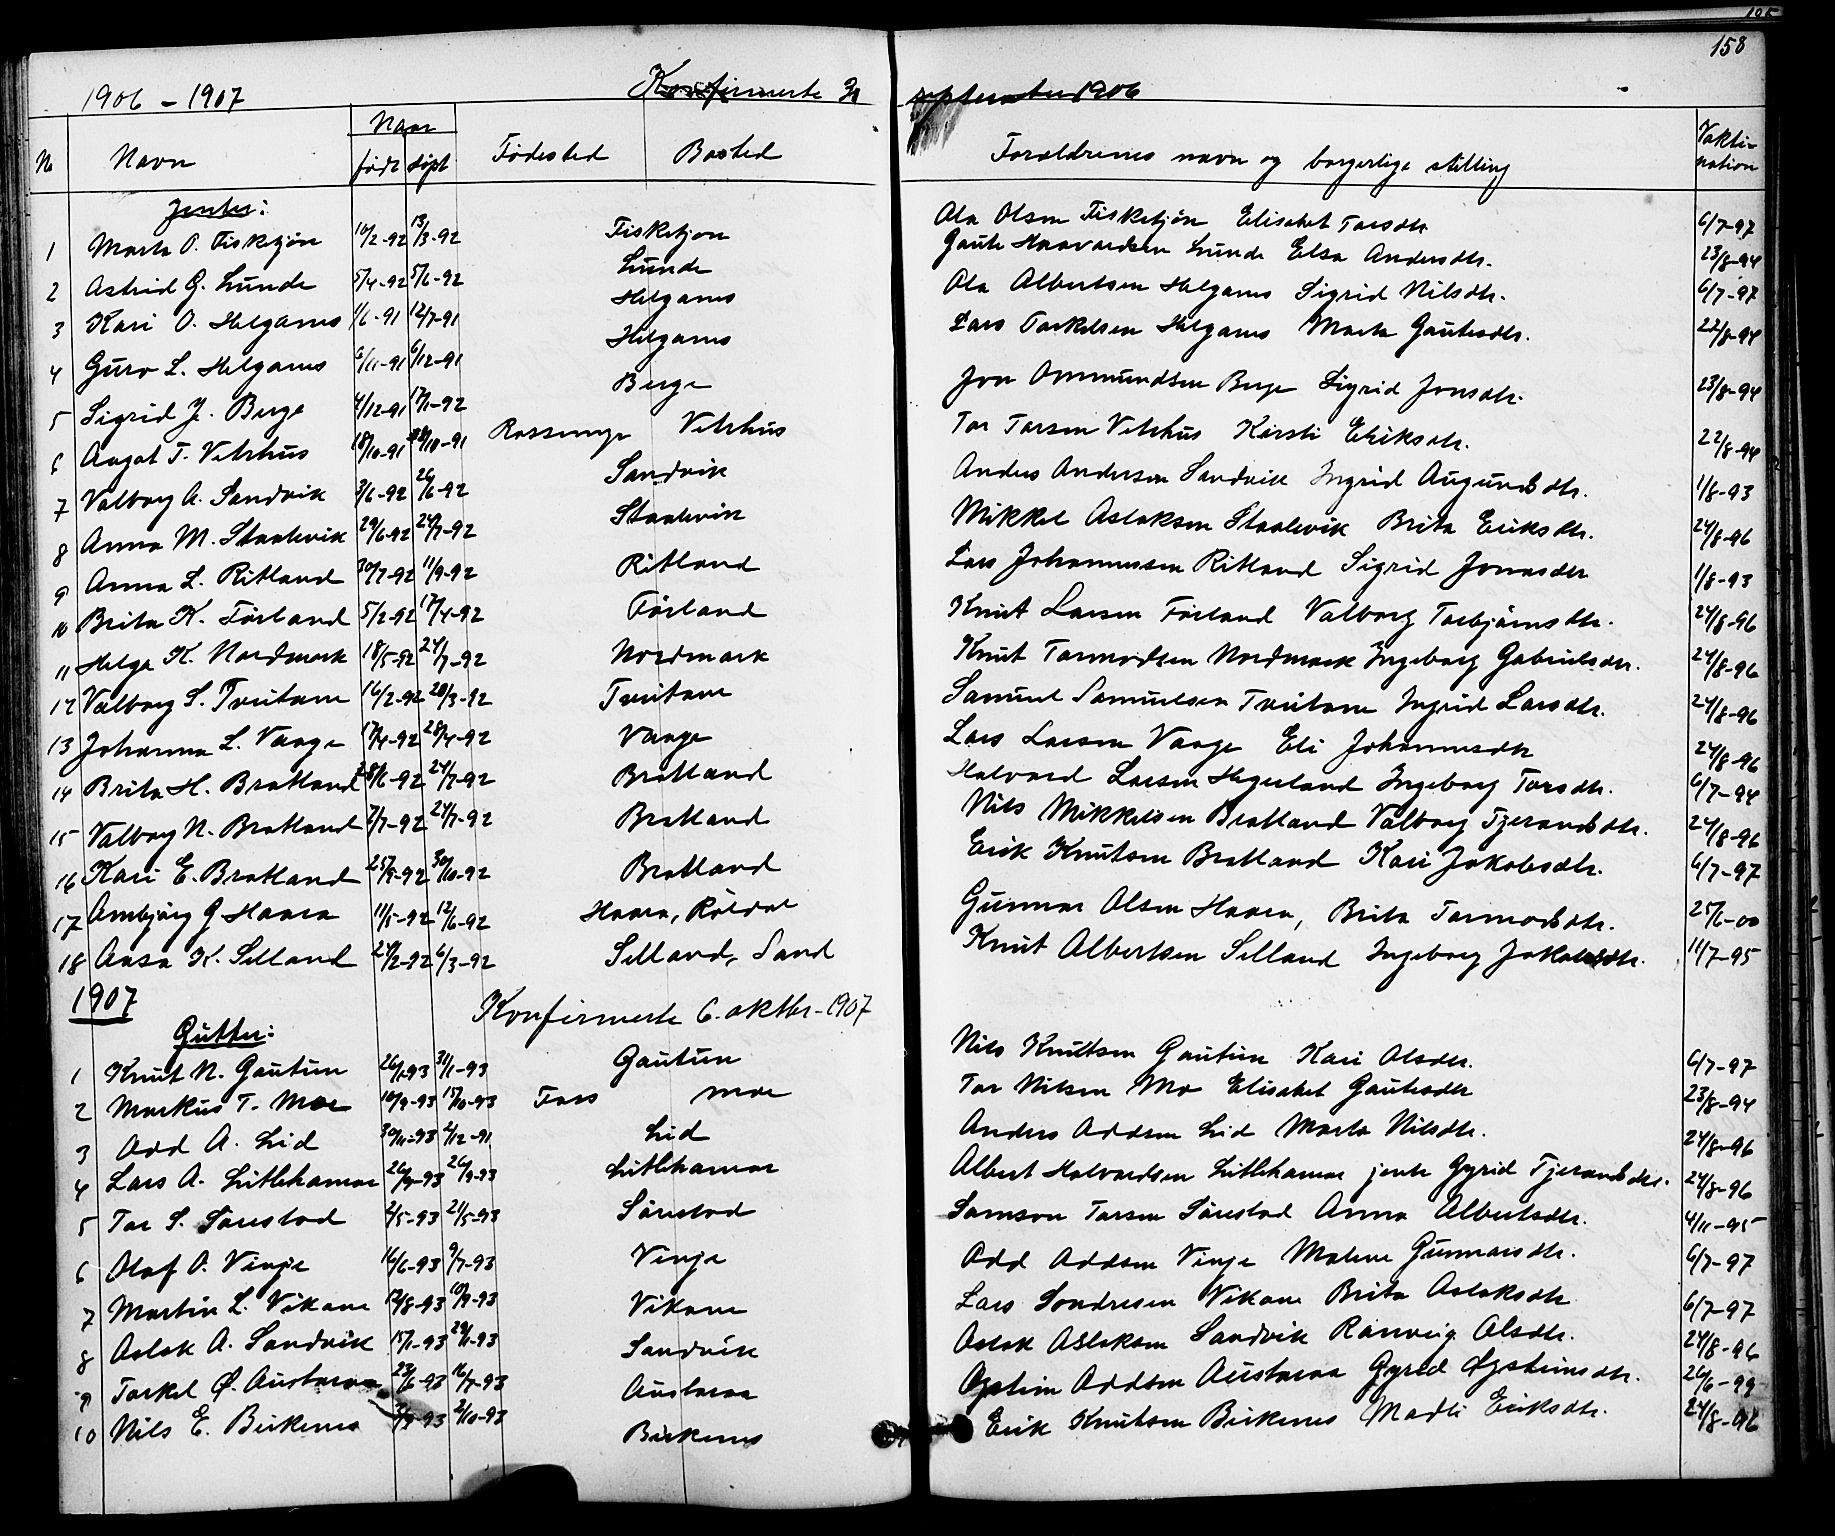 158
1906 - 1907 Konfirmerte 30 september 1906
No Navn Naar født døpt Fødested Bosted Foreldrenes navn og borgerlige stilling Vaktination
Jenter:
1 Marta O. Fisketjøn 10/2-92 13/3-92 Fisketjon Ola Olsen Fisketjøn Elisabet Torsdtr 6/7-97
2 Astrid G. Lunde 5/4-92 5/6-92 Lunde Gaute Haavardsen Lunde Elsa Andersdtr. 23/8-94
3 Kari O. Helganes 1/6-91 12/7-91 Helganes Ola Albertsen Helganes Sigrid Nilsdtr. 6/7-97
4 Guro L. Helganes 6/11-91 6/12-91 Helganes Lars Torkelsen Helganes Marta Gautesdtr. 22/8-94
5 Sigrid J. Berge 4/12-91 17/1-92 Berge Jon Ommundsen Berge Sigrid Jonsdtr. 23/8-94
6 Aagot T. Vetrhus 18/10-91 /10-91 Vetrhus Tor Torsen Vetrhus Kirsti Eriksdtr. 22/8-94
7 Valborg A. Sandvik 3/6-92 26/6-92 Sandvik Anders Andersen Sandvik Ingrid Augundsdtr. 1/8-93
8 Anna M. Staalevik 29/6-92 24/7-92 Staalevik Mikkel Aslaksen Staalevik Brita Eriksdtr. 24/8-96
9 Anna L. Ritland 30/7-92 11/9-92 Ritland Lars Johannessen Ritland Sigrid Jonasdtr 1/8-93
10 Brita K. Førland 5/2-92 17/4-92 Førland Knut Larsen Førland Valborg Torbjørnsdtr. 24/8-96
11 Helga K. Nordmork 18/5-92 24/7-92 Nordmark Knut Tormodsen Nordmark Ingeborg Gabrielsdtr. 24/8-96
12 Valborg S. Tveitane 16/2-92 20/3-92 Tveitane Samuel Samuelsen Tveitane Ingrid Larsdtr. 24/8-96
13 Johanna L. Vaage 17/4-92 28/4-92 Vaage Lars Larsen Vaage Eli Johannesdtr 24/8-96
14 Brita H. Bratland 28/6-92 24/7-92 Bratland Halvard Larsen Hegerland Ingeborg Torsdtr. 6/7-94
15 Valborg N. Bratland 2/7-92 24/7-92 Bratland Nils Mikkelsen Bratland Valborg Tjerandsdtr. 24/8-96
16 Kari E. Bratland 25/8-92 30/10-92 Bratland Erik Knutsen Bratland Kari Jakobsdtr. 6/7-97
17 Arnbjørg G Haara 11/5-92 12/6-92 Haara, Røldal Gunnar Olsen Haara, Brita Tormodsdtr. 25/6-00
18 Aasa K. Selland 24/2-92 6/3-92 Selland, Sand Knut Albertsen Selland Ingeborg Jakobsdtr. 11/7-95
1907 Konfirmerte 6. oktbr. 1907
Gutter:
1 Knut N. Gautun 26/1-93 31/1-93 Gautun Nils Knutsen Gautun Kari Olsdtr. 6/7-97
2 Markus T. Moe 10/9-93 15/10-93 Fars Moe Tor Nilsen Mo Elisabet Gautesdtr 23/8-94
3 Odd A. Lid 30/11-93 2/12-91 Lid Anders Oddsen Lid Marta Nilsdtr. 24/8-96
4 Lars A. Litlehamar 26/9-93 26/9-93 Litlehamar Albert Halvardsen Litlehamar jente Gyrid Tjerandsdtr. 24/8-96
5 Tor S. Sørestad 2/5-93 21/5-93 Sørestad Samson Torsen Sørestad Anna Albertsdtr. 4/11-95
6 Olaf O. Vinje 16/6-93 9/7-93 Vinje Odd Oddsen Vinje Malene Gunnarsdtr. 6/7-97
7 Martin L. Vikane 12/8-93 10/9-93 Vikane Lars Sondresen Vikane Brita Aslaksdtr 6/7-97
8 Aslak A. Sandvik 15/1-93 29/1-93 Sandvik Aslak Aslaksen Sandvik Ranveig Olsdtr. 24/8-96
9 Torkel Ø. Austaraa 23/6-93 16/7-93 Austaraa Øystein Oddsen Austaraa Gyrid Øysteinsdtr. 26/6-99
10 Nils E. Birkenes /9-93 2/10-93 Birkenes Erik Knutsen Birkenes Madli Eriksdtr. 24/8-96